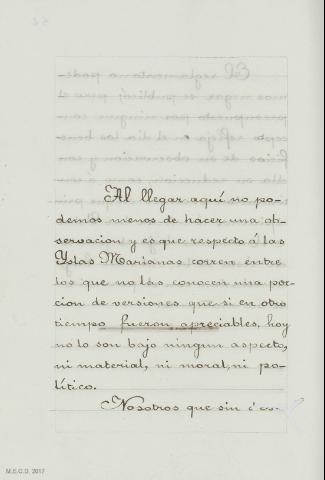 Al llegar aquí no po-
demos menos de hacer una ob-
servacion y es que respecto á las
Yslas Marianas corren entre
los que no las conocen una por-
cion de versiones que si en otro
tiempo fueron apreciables, hoy
no lo son bajo ningun aspecto,
ni material, ni moral, ni po-
lítico.
Nosotros que sin
M.E.C.D. 2017